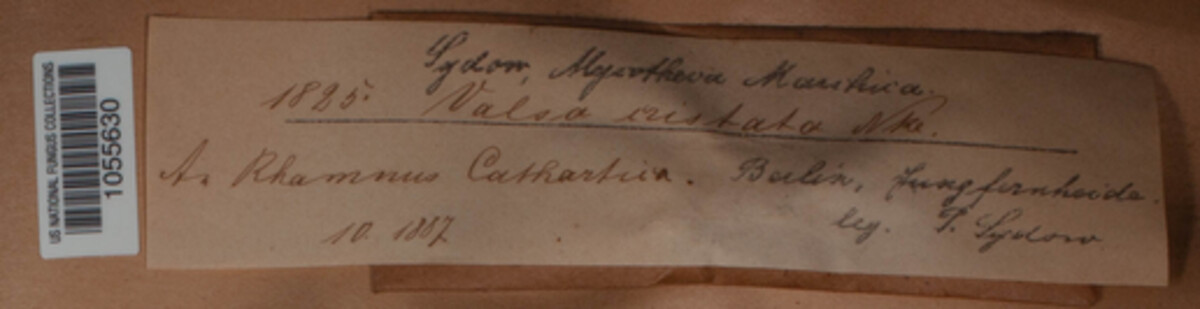 US NATIONAL FUNGUS COLLECTIONS
1055630
Sydow, Mycotheca Marchica.
1825. Valsa cristata Nke.
An Rhamnus Cathartica. Berlin, Jungfernheide.
10. 1887. leg. P. Sydow